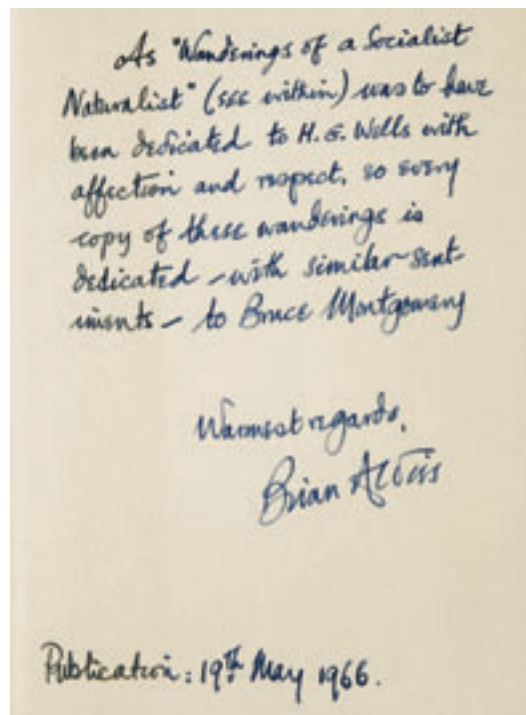 As "Wanderings of a Socialist
Naturalist" (see within) was to have
been dedicated to H. G. Wells with
affection and respect, so every
copy of these wanderings is
dedicated – with similar sent-
iments – to Bruce Montgomery
Warmest regards,
Brian Aldiss
Publication: 19th May 1966.